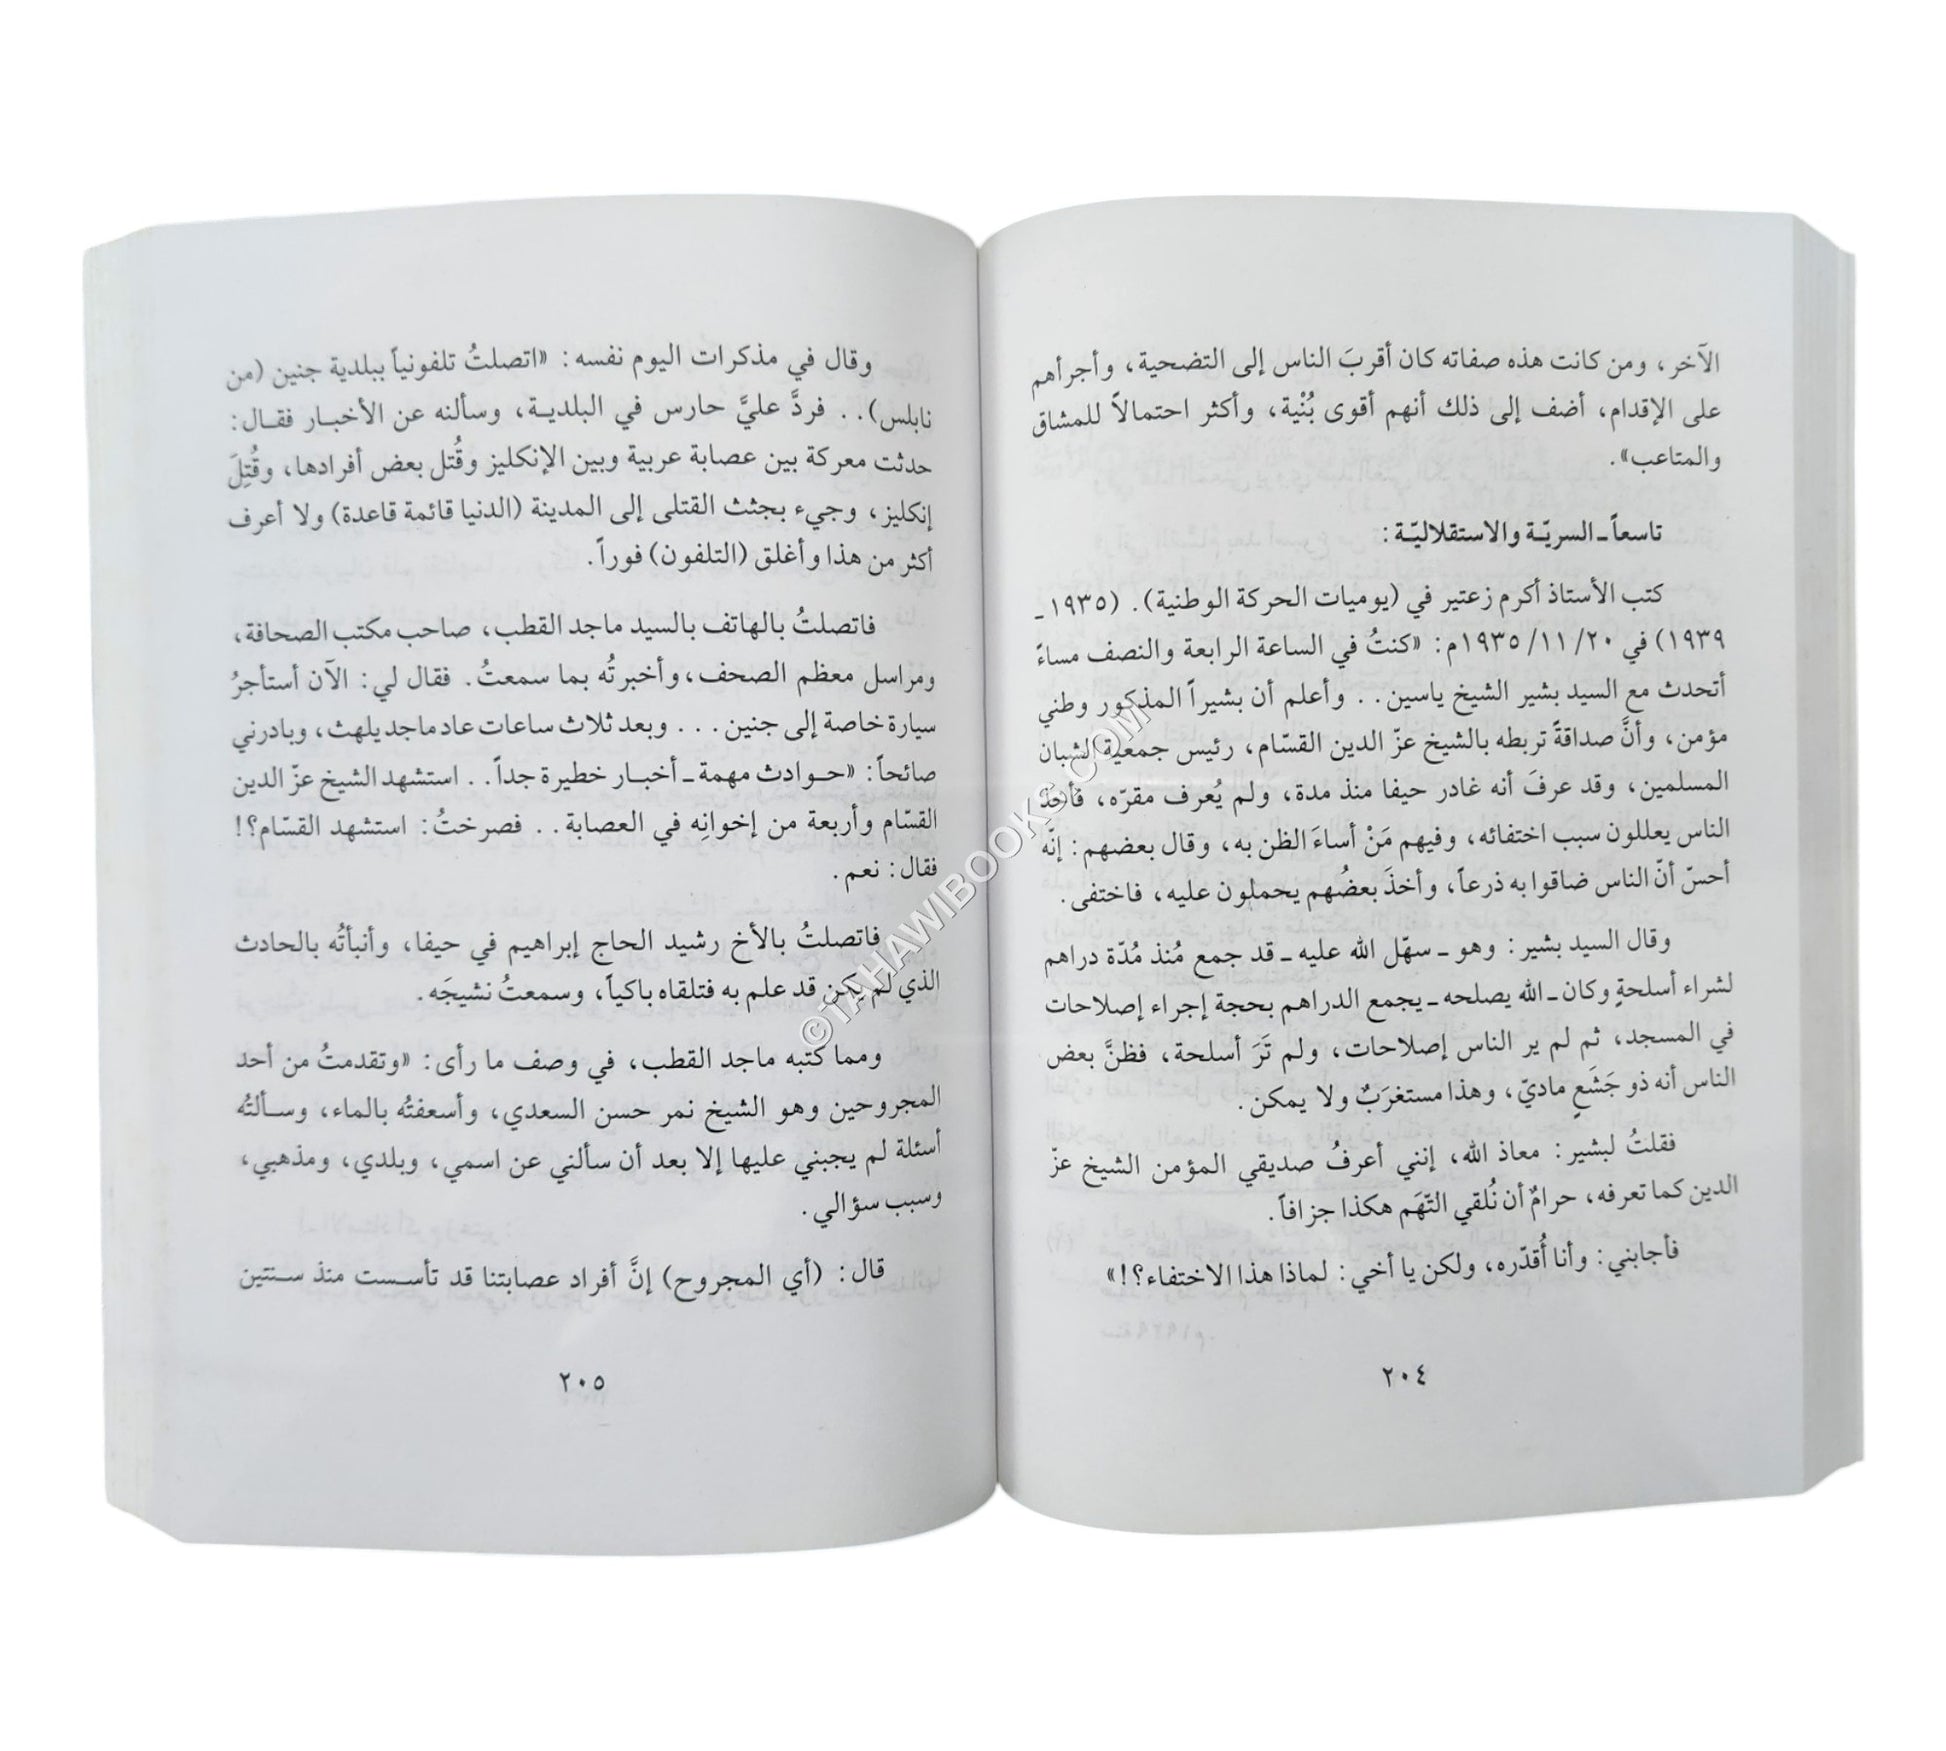 الآخر، ومن كانت هذه صفاته كان أقربَ الناس إلى التضحية، وأجرأهم
على الإقدام، أضف إلى ذلك أنهم أقوى بُنْية، وأكثر احتمالاً للمشاق
والمتاعب».
تاسعاً ـ السريّة والاستقلاليّة:
كتب الأستاذ أكرم زعتير في (يوميات الحركة الوطنية). (١٩٣٥ ـ
١٩٣٩) في ٢٠/ ١١/ ١٩٣٥م: «كنتُ في الساعة الرابعة والنصف مساءً
أتحدث مع السيد بشير الشيخ ياسين.. وأعلم أن بشيراً المذكور وطني
مؤمن، وأنَّ صداقةً تربطه بالشيخ عزّ الدين القسّام، رئيس جمعية الشبان
المسلمين، وقد عرفَ أنه غادر حيفا منذ مدة، ولم يُعرف مقرّه، فأخذ
الناس يعللون سبب اختفائه، وفيهم مَنْ أساءَ الظن به، وقال بعضهم: إنّه
أحسّ أنّ الناس ضاقوا به ذرعاً، وأخذَ بعضُهم يحملون عليه، فاختفى.
وقال السيد بشير: وهو ـ سهّل الله عليه ـ قد جمع مُنذ مُدّة دراهم
لشراء أسلحةٍ وكان ـ الله يصلحه ـ يجمع الدراهم بحجة إجراء إصلاحات
في المسجد، ثم لم ير الناس إصلاحات، ولم تَرَ أسلحة، فظنَّ بعض
الناس أنه ذو جَشَعٍ ماديّ، وهذا مستغرَبٌ ولا يمكن.
فقلتُ لبشير: معاذ الله، إنني أعرفُ صديقي المؤمن الشيخ عزّ
الدين كما تعرفه، حرامٌ أن نُلقي التّهَم هكذا جزافاً.
فأجابني: وأنا أُقدّره، ولكن يا أخي: لماذا هذا الاختفاء؟!»
٢٠٤
وقال في مذكرات اليوم نفسه: «اتصلتُ تلفونياً ببلدية جنين (من
نابلس).. فردَّ عليَّ حارس في البلديـة، وسألنه عن الأخبـار فقـال:
حدثت معركة بين عصابة عربية وبين الإنكليز وقُتل بعض أفرادها، وقُتِلَ
إنكليز، وجيء بجثث القتلى إلى المدينة (الدنيا قائمة قاعدة) ولا أعرف
أكثر من هذا وأغلق (التلفون) فوراً.
فاتصلتُ بالهاتف بالسيد ماجد القطب، صاحب مكتب الصحافة،
ومراسل معظم الصحف، وأخبرتُه بما سمعتُ. فقال لي: الآن أستأجرُ
سيارة خاصة إلى جنين... وبعد ثلاث ساعات عاد ماجد يلهث، وبادرني
صائحاً: «حـوادث مهمة ـ أخبـار خطيرة جداً.. استشهد الشيخ عزّ الدين
القسّام وأربعة من إخوانِه في العصابة.. فصرختُ: استشهد القسّام؟!
فقال: نعم.
فاتصلتُ بالأخ رشيد الحاج إبراهيم في حيفا، وأنبأتُه بالحادث
الذي لم يكن قد علم به فتلقاه باكياً، وسمعتُ نشيجَه.
ومما كتبه ماجد القطب، في وصف ما رأى: «وتقدمتُ من أحد
المجروحين وهو الشيخ نمر حسن السعدي، وأسعفتُه بالماء، وسـألتُه
أسئلة لم يجبني عليها إلا بعد أن سألني عن اسمي، وبلدي، ومذهبي،
وسبب سؤالي.
قال: (أي المجروح) إنَّ أفراد عصابتنا قد تأسـست منذ سـنتين
٢٠٥
©TAHAWIBOOKS.COM